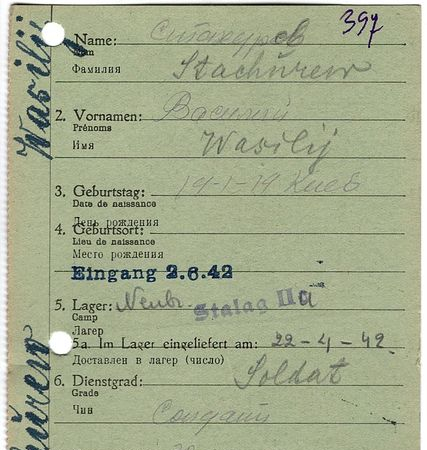 397
Name: Стахурев
Nom
Фамилия Stachùrew
2. Vornamen: Василий
Prénoms
Имя Wasilÿ
3. Geburtstag: 19-1-19 Киев
Date de naissance
День рождения
4. Geburtsort:
Lieu de naissance
Место рождения
Eingang 2.6.42
5. Lager: Neubr. Stalag II a
Camp
Лагер
5a. Im Lager eingeliefert am: 22-4-42
Доставлен в лагер (число)
6. Dienstgrad: Soldat
Grade
Чин Солдат
Wasilÿ